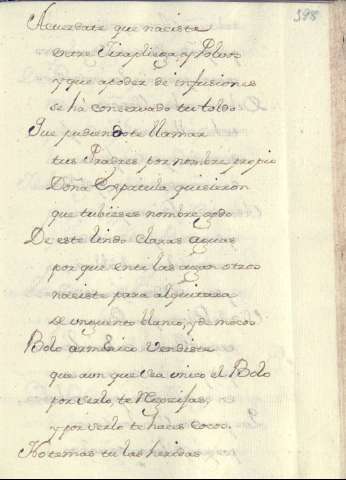 398
Acuerdate que naciste
entre Girapliega, y Polvos
y que apoder de infusiones
se hà conservado tu toldo
Que pudiendote llamar
tus Padres por nombre propio
Doña Espatula quisieron
que tubieses nombre godo
De este lindo claras aguas
por que en ti las agan otros
naciste para alquitara
de unguento blanco, y de mocos
Bolo armenico vendiste
que aun que sea unico el Bolo
por serlo, te
y por serlo te haces cocos.
No temas tu las heridas